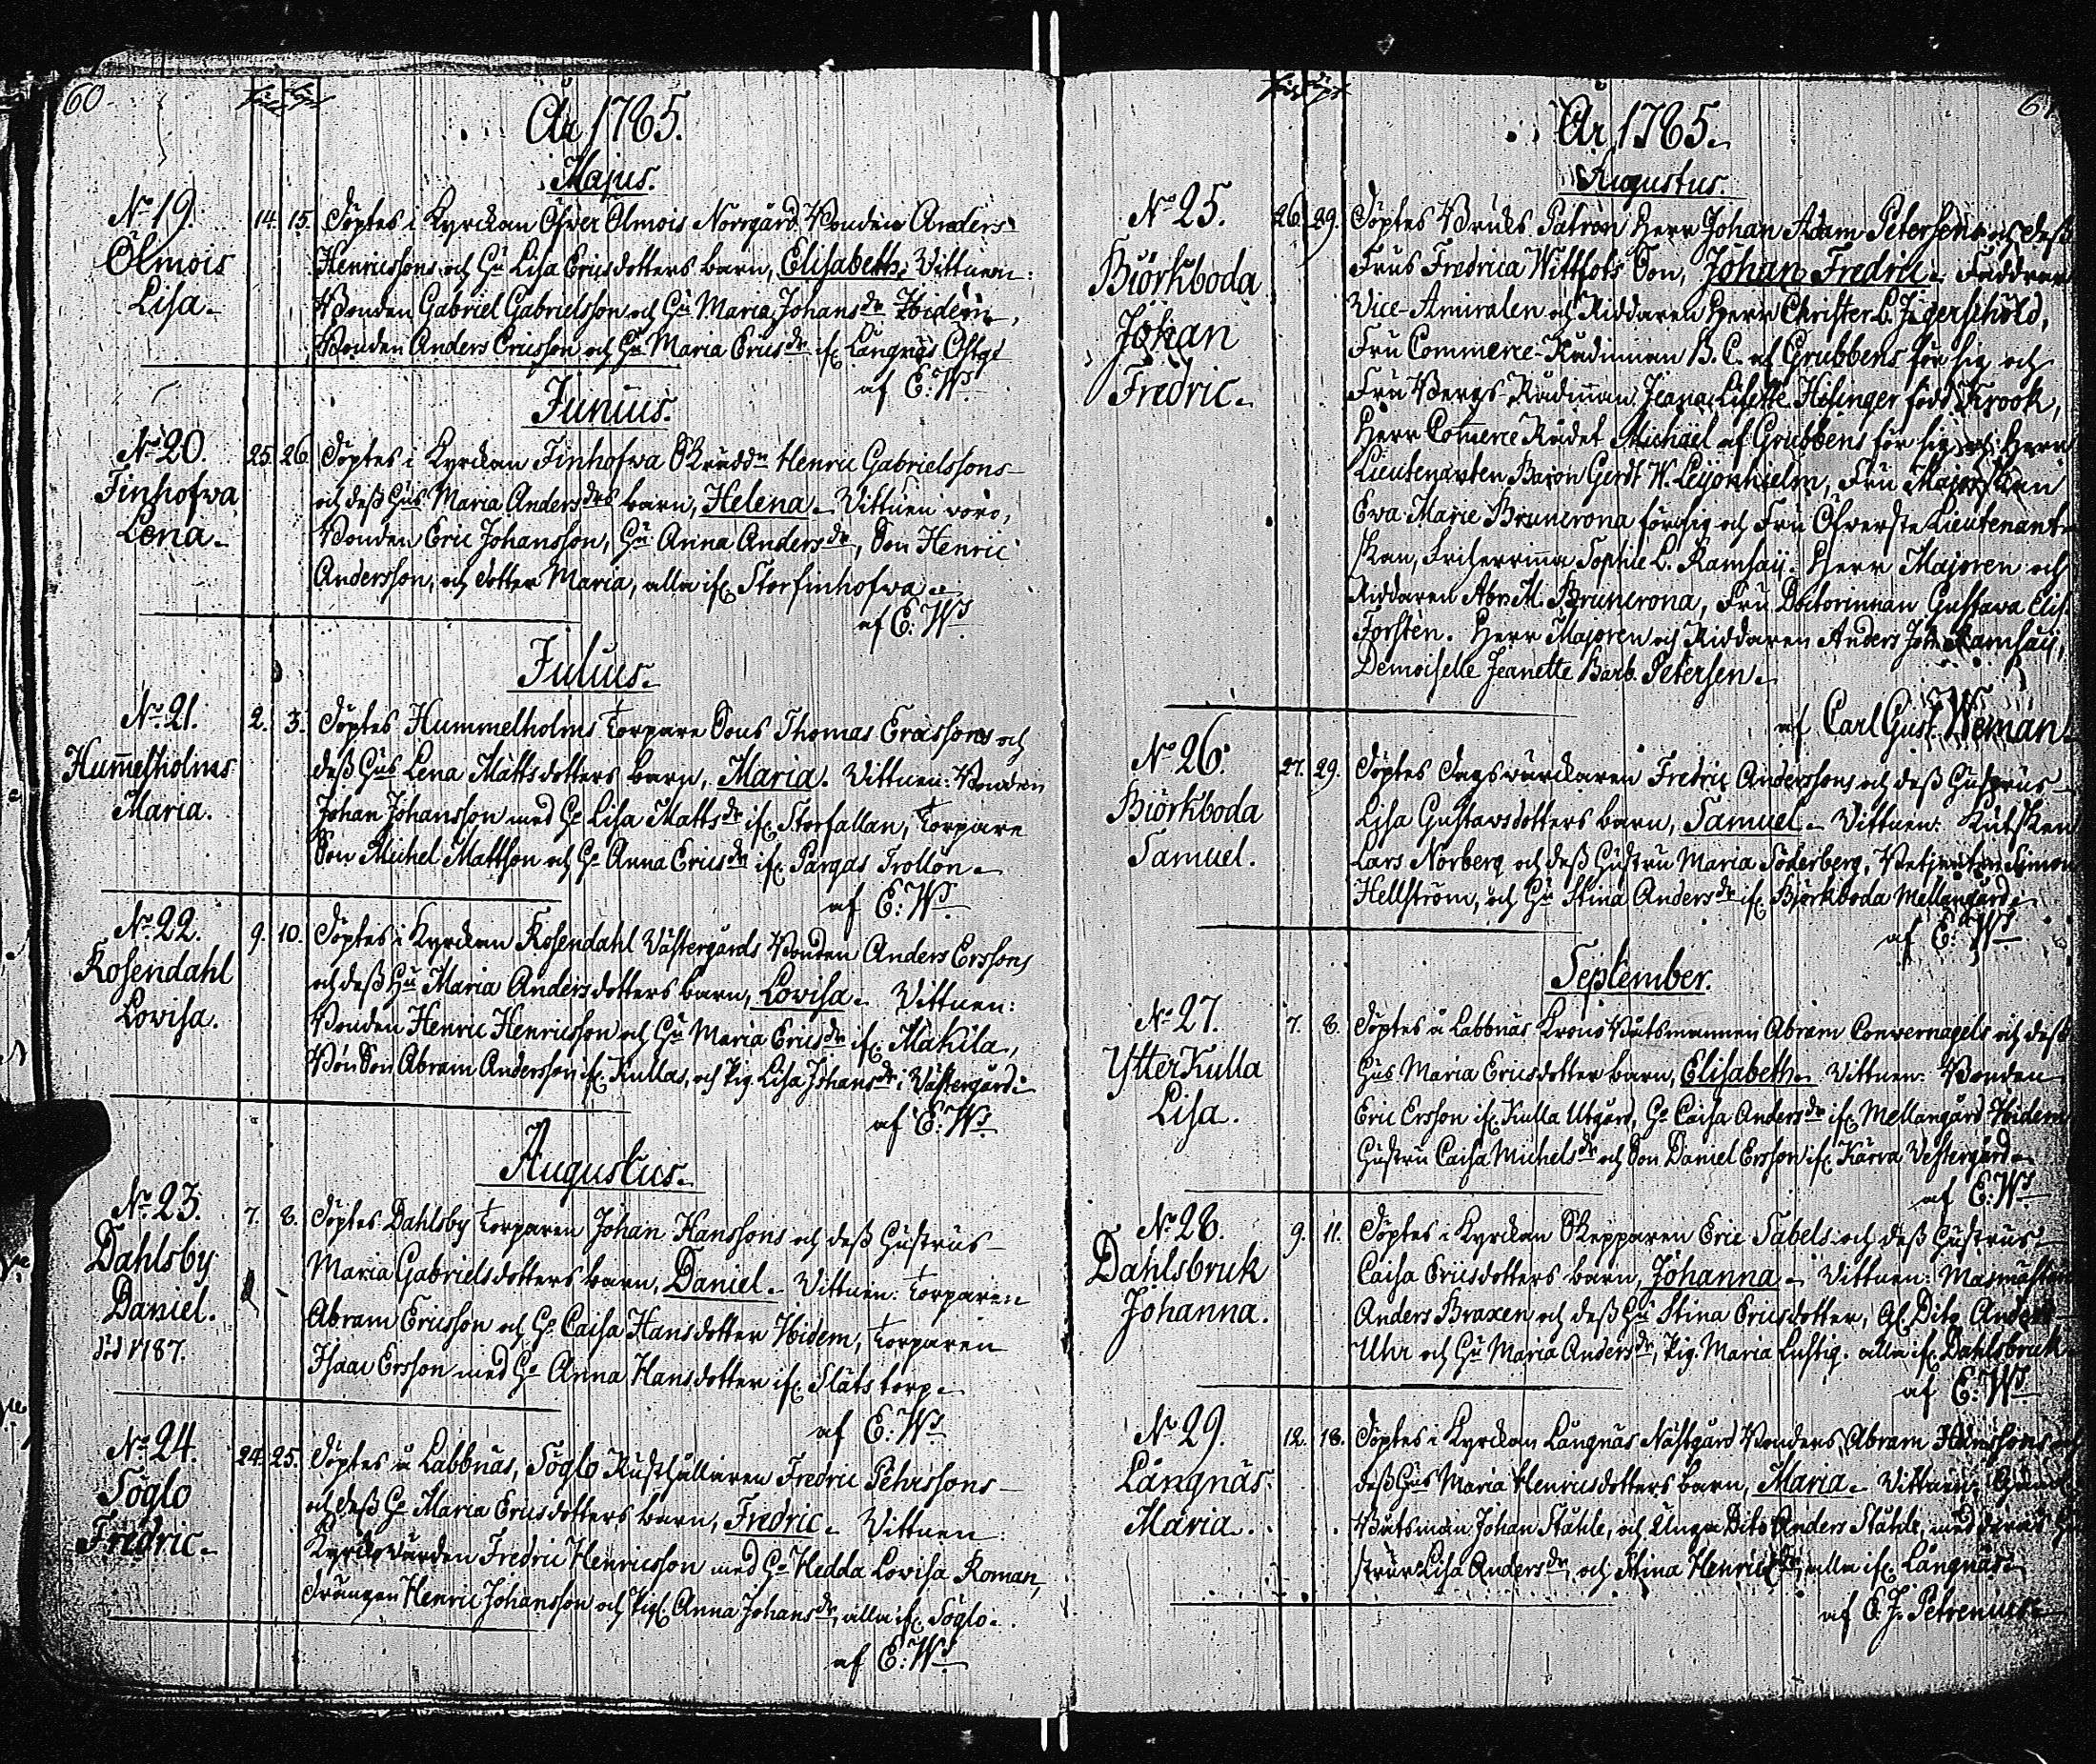 60
År 1785.
Majus.
No 19.
Ölmois
Lisa.
14. 15. Döptes i Kyrckan Öfver Ölmois Norrgård Bonden Anders
Henricssons och Hu Lisa Ericsdotters barn, Elisabeth. Vittnen:
Bonden Gabriel Gabrielsson och Hu Maria Johansdr Ibidem,
Bonden Anders Ericsson och Hu Maria Ericsdr if. Långnäs
af E: Ws.
Junius.
No 20.
Finhofwa
Lena.
25. 26. Döptes i Kyrckan Finhofwa Skräddn Henric Gabrielssons
och dess Hus Maria Andersdrs barn, Helena. Vittnen voro,
Bonden Eric Johansson, Hu Anna Andersdr, Son Henric
Andersson, och dotter Maria, alla if. Storfinhofwa.
af E: Ws.
Julius.
No 21.
Hummelholms
Maria.
2. 3. Döptes Hummelholms Torpare Sons Thomas Ericssons och
dess Hus Lena Mattsdotters barn, Maria. Vittnen: Bonden
Johan Johansson med Hu Lisa Mattsdr if. Storfallan, Torpare
Son Michel Mattson och Hu Anna Ericsdr if. Pargas Trollön.
af E: Ws.
No 22.
Rosendahl
Lovisa.
9. 10. Döptes i Kyrckan Rosendahl Västergårds Bonden Anders Erssons
och dess Hu Maria Andersdotters barn, Lovisa. Vittnen:
Bonden Henric Henricsson och Hu Maria Ericsdr if. Makila,
Bondson Abram Andersson if. Kullas, och Pig. Lisa Johansdr i Västergård.
af E: Ws.
Augustus.
No 23.
Dahlsby
Daniel.
död 1787.
7. 8. Döptes Dahlsby Torparen Johan Hanssons och dess Hustrus
Maria Gabrielsdotters barn, Daniel. Vittnen: Torparen
Abram Ericsson och Hu Caisa Hansdotter Ibidem, Torparen
Isaac Ersson med Hu Anna Hansdotter if. Slätstorp.
af E: Ws.
No 24.
Söglo
Fredric.
24. 25. Döptes å Labbnäs, Söglo Rusthållaren Fredric Pehrssons
och dess Hu Maria Ericsdotters barn, Fredric. Vittnen:
Kyrckovärden Fredric Henricsson med Hu Hedda Lovisa Roman,
Drängen Henric Johansson och Pig. Anna Johansdr, alla if. Söglo.
af E: Ws.
År 1785.
Augustus.
No 25.
Biörkboda
Johan
Fredric.
26. 29. Döptes Bruks Patron Herr Johan Adam Petersens och dess
Frus Fredrica Wittfots Son, Johan Fredric. Faddrar
Vice-Amiralen och Riddaren Herr Christer L. Jägerschöld,
Fru Commerce-Rådinnan B. C. af Grubbens för sig och
Fru Bergs-Rådinnan Jeana Lisette Hisinger född Krook,
Herr Commerce Rådet Michael af Grubbens för sig och Herr
Lieutenanten Baron Gerdt W. Leijonhielm, Fru Majorskan
Ewa Marie Brunerona för sig och Fru Öfverste Lieutenant-
skan, Friherrinna Sophie L. Ramsaij. Herr Majoren och
Riddaren Abr. M. Brunerona, Fru Doctorinnan Gustava Elis.
Forstén. Herr Majoren och Riddaren Anders Joh. Ramsaij,
Demoiselle Jeanette Barb. Petersen.
af Carl Gust. Weman.
No 26.
Biörkboda
Samuel.
27. 29. Döptes Dagsvärckaren Fredric Anderssons och dess Hustrus
Lisa Gustavsdotters barn, Samuel. Vittnen: Kusken
Lars Norberg och dess Hustru Maria Söderberg, Betjenten Simon
Hellström, och Hu Stina Andersdr if. Björkboda Mellangård.
af E: Ws.
September.
No 27.
Ytterkulla
Lisa.
7. 8. Döptes å Labbnäs Krono Båtsmannen Abram Conwernagels och dess
Hus Maria Ericsdotter barn, Elisabeth. Vittnen: Bonden
Eric Ersson if. Kulla Utgård, Hu Caisa Andersdr if. Mellangård Ibidem
Hustru Caisa Michelsdr och Son Daniel Ersson if. Kärra Vestergård.
af E: Ws.
No 28.
Dahlsbruk
Johanna.
9. 11. Döptes i Kyrckan Skepparen Eric Sabels och dess Hustrus
Caisa Ericsdotters barn, Johanna. Vittnen: Masmästaren
Anders Braxen och dess Hu Stina Ericsdotter, Gl. Dito Anders
Uhr och Hu Maria Andersdr, Pig. Maria Lustig. alla if. Dahlsbruk.
af E: Ws.
No 29.
Långnäs.
Maria.
12. 18. Döptes i Kyrckan Långnäs Nästgård Bonders Abram Hanssons och
dess Hus Maria Henricsdotters barn, Maria. Vittnen:
Båtsman Johan Ståhle, och Unga Dito Anders Ståhle, med deras Hu-
strur Lisa Andersdr och Stina Henricsdr alla if. Långnäs.
af E. J. Petrenius.